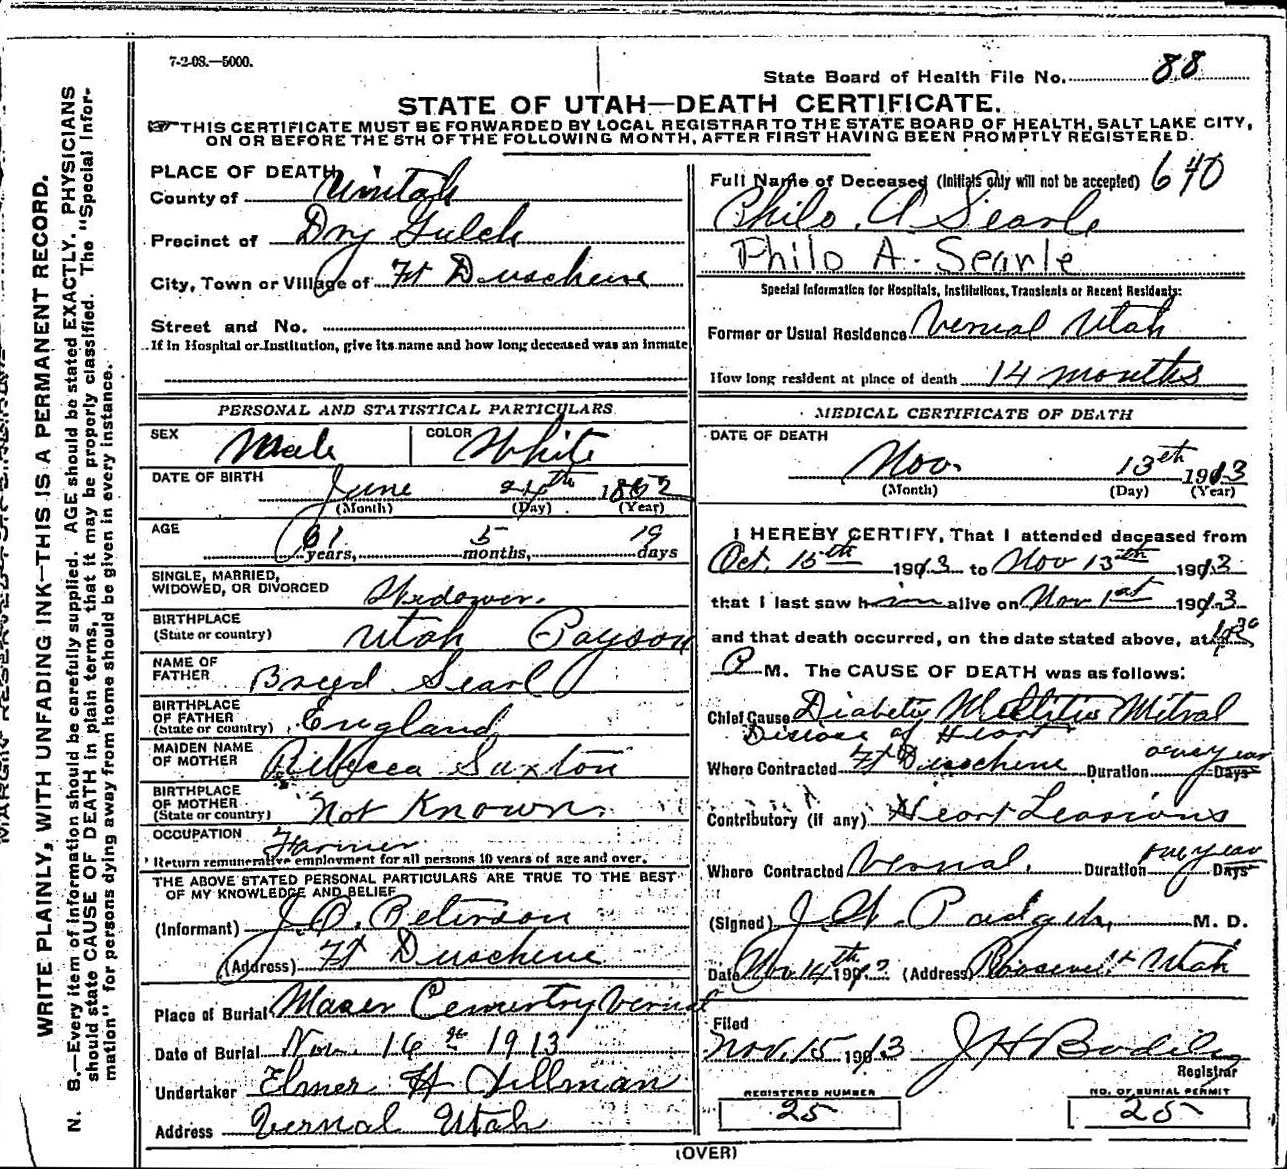 7-2-08.—5000.
State Board of Health File No. 88
STATE OF UTAH—DEATH CERTIFICATE.
☞THIS CERTIFICATE MUST BE FORWARDED BY LOCAL REGISTRAR TO THE STATE BOARD OF HEALTH, SALT LAKE CITY,
ON OR BEFORE THE 5TH OF THE FOLLOWING MONTH, AFTER FIRST HAVING BEEN PROMPTLY REGISTERED.
WRITE PLAINLY, WITH UNFADING INK—THIS IS A PERMANENT RECORD.
N. B.—Every item of information should be carefully supplied. AGE should be stated EXACTLY. PHYSICIANS
should state CAUSE OF DEATH in plain terms, that it may be properly classified. The "Special Infor-
mation" for persons dying away from home should be given in every instance.
PLACE OF DEATH
County of Uintah
Precinct of Dry Gulch
City, Town or Village of Ft Duschene
Street and No.
If in Hospital or Institution, give its name and how long deceased was an inmate
PERSONAL AND STATISTICAL PARTICULARS
SEX Male COLOR White
DATE OF BIRTH June 24th 1852
(Month) (Day) (Year)
AGE 61 years, 5 months, 19 days
SINGLE, MARRIED,
WIDOWED, OR DIVORCED Widower.
BIRTHPLACE
(State or country) Utah Payson
NAME OF
FATHER Breed Searl
BIRTHPLACE
OF FATHER
(State or country) England
MAIDEN NAME
OF MOTHER Ribbecca Saxton
BIRTHPLACE
OF MOTHER
(State or country) Not Known
OCCUPATION Farmer
Return remunerative employment for all persons 10 years of age and over.
THE ABOVE STATED PERSONAL PARTICULARS ARE TRUE TO THE BEST
OF MY KNOWLEDGE AND BELIEF
(Informant) J. P. Peterson
(Address) Ft Duschene
Place of Burial Maser Cementry Vernal
Date of Burial Nov. 16th 1913
Undertaker Elmer H Dillman
Address Vernal Utah
Full Name of Deceased (Initials only will not be accepted) 640
Philo. A Searle
Philo A. Searle
Special Information for Hospitals, Institutions, Transients or Recent Residents:
Former or Usual Residence Vernal Utah
How long resident at place of death 14 months
MEDICAL CERTIFICATE OF DEATH
DATE OF DEATH
Nov. 13th 1913
(Month) (Day) (Year)
I HEREBY CERTIFY, That I attended deceased from
Oct. 15th 1913 to Nov 13th 1913
that I last saw him alive on Nov 1st 1913
and that death occurred, on the date stated above, at
P M. The CAUSE OF DEATH was as follows:
Chief Cause Diabety Mellitus Mitral
Disease of Heart
Where Contracted Ft Duschene Duration one year Days
Contributory (if any) Heart Leasions
Where Contracted Vernal. Duration one year Days
(Signed) J. W. Padgett, M. D.
Date Nov 14th 191 (Address) Roosevelt Utah
Filed
Nov. 15 1913 J H Bodily
Registrar
REGISTERED NUMBER
25
NO. OF BURIAL PERMIT
25
(OVER)